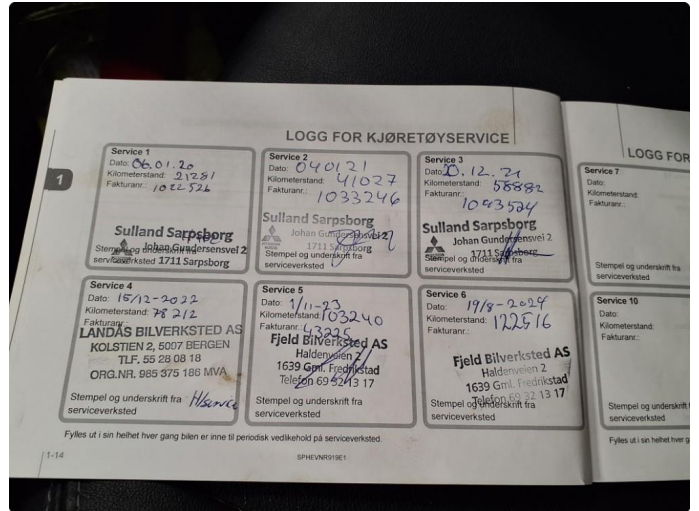 LOGG FOR KJØRETØYSERVICE
1
Service 1
Dato: 06.01.20
Kilometerstand: 21281
Fakturanr.: 1022526
Sulland Sarpsborg
Johan Gundersensvei 2
1711 Sarpsborg
Stempel og underskrift fra
serviceverksted
Service 2
Dato: 040121
Kilometerstand: 41027
Fakturanr.: 1033246
Sulland Sarpsborg
Johan Gundersensvei 2
1711 Sarpsborg
Stempel og underskrift fra
serviceverksted
Service 3
Dato: 20.12.21
Kilometerstand: 58882
Fakturanr.: 1093504
Sulland Sarpsborg
Johan Gundersensvei 2
1711 Sarpsborg
Stempel og underskrift fra
serviceverksted
Service 4
Dato: 15/12-2022
Kilometerstand: 78212
Fakturanr.:
LANDÅS BILVERKSTED AS
KOLSTIEN 2, 5097 BERGEN
TLF. 55 28 08 18
ORG.NR. 985 375 186 MVA
Stempel og underskrift fra
serviceverksted
Service 5
Dato: 1/11-23
Kilometerstand: 103240
Fakturanr.: 43225
Fjeld Bilverksted AS
Haldenveien 2
1639 Gml. Fredrikstad
Telefon 69 32 13 17
Stempel og underskrift fra
serviceverksted
Service 6
Dato: 19/8-2024
Kilometerstand: 122516
Fakturanr.:
Fjeld Bilverksted AS
Haldenveien 2
1639 Gml. Fredrikstad
Telefon 69 32 13 17
Stempel og underskrift fra
serviceverksted
Fylles ut i sin helhet hver gang bilen er inne til periodisk vedlikehold på serviceverksted.
1-14
SPHEVNR919E1
LOGG FOR
Service 7
Dato:
Kilometerstand:
Fakturanr.:
Stempel og underskrift fra
serviceverksted
Service 10
Dato:
Kilometerstand:
Fakturanr.:
Stempel og underskrift fra
serviceverksted
Fylles ut i sin helhet hver g